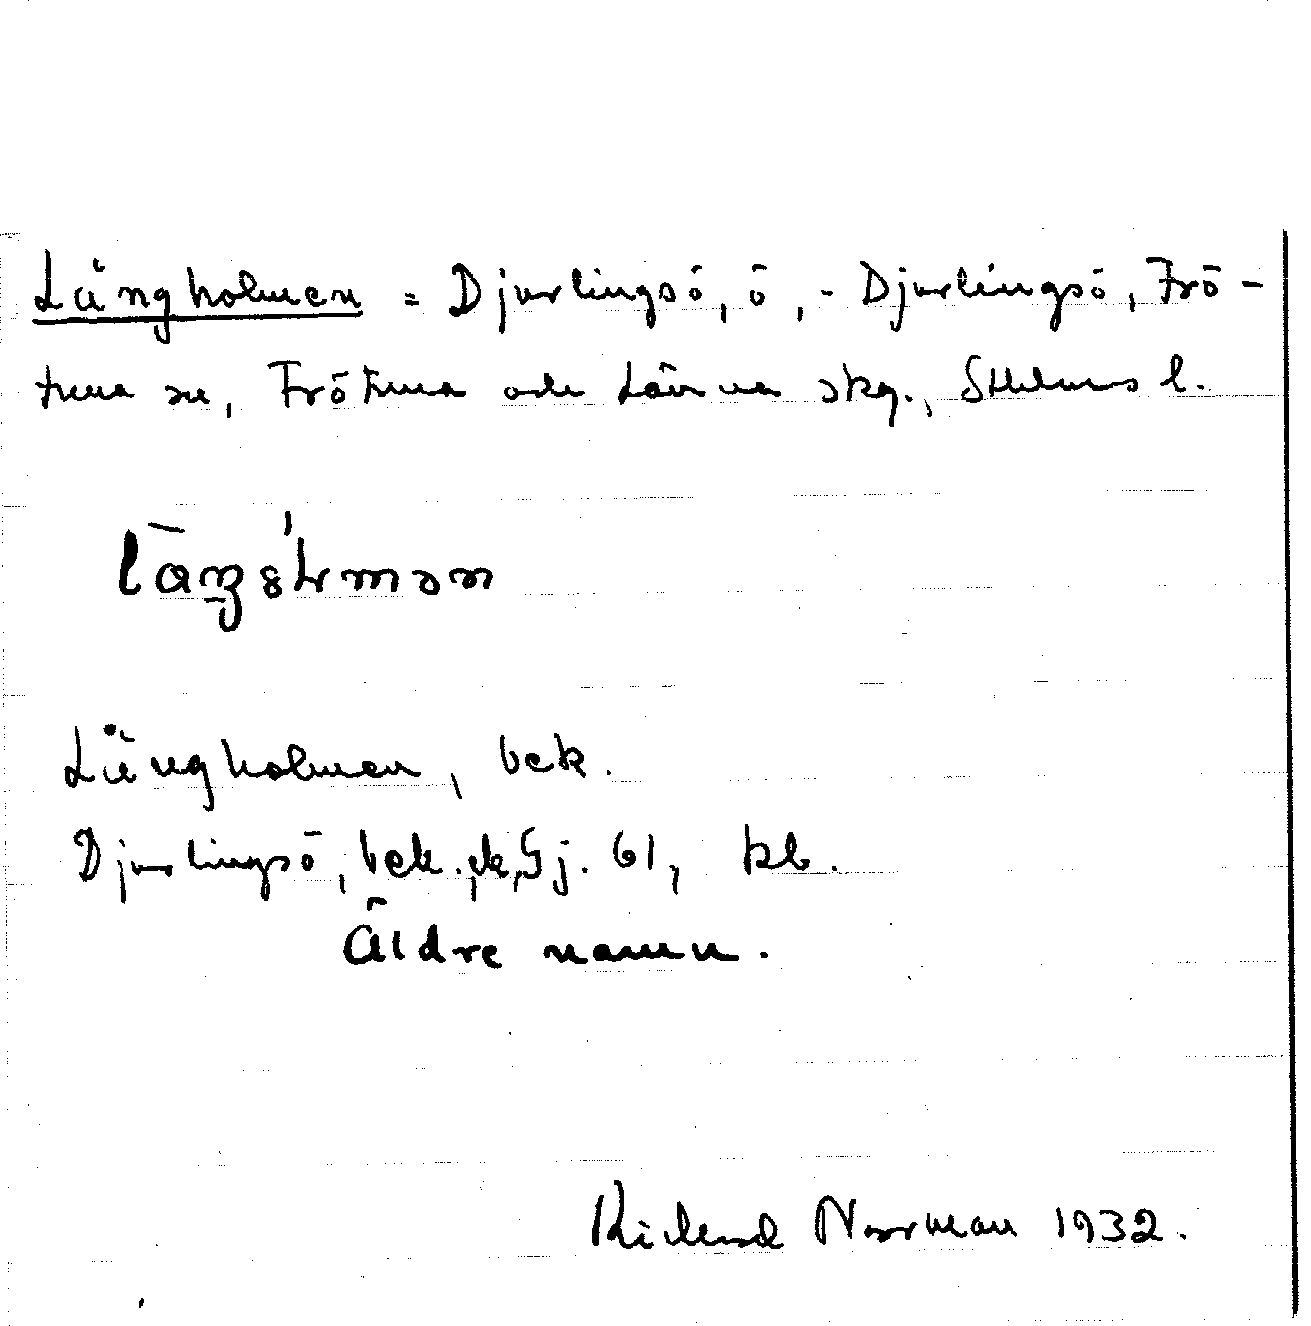 Långholmen = Djurlingsö, ö, - Djurlingsö, Frö-
tuna sn, Frötuna och Länna skg., Sthlms l.
Långholmen, bek.
Djurlingsö, bek., ek, Gj. 61, kb.
Äldre namn.
Richard Norrman 1932.